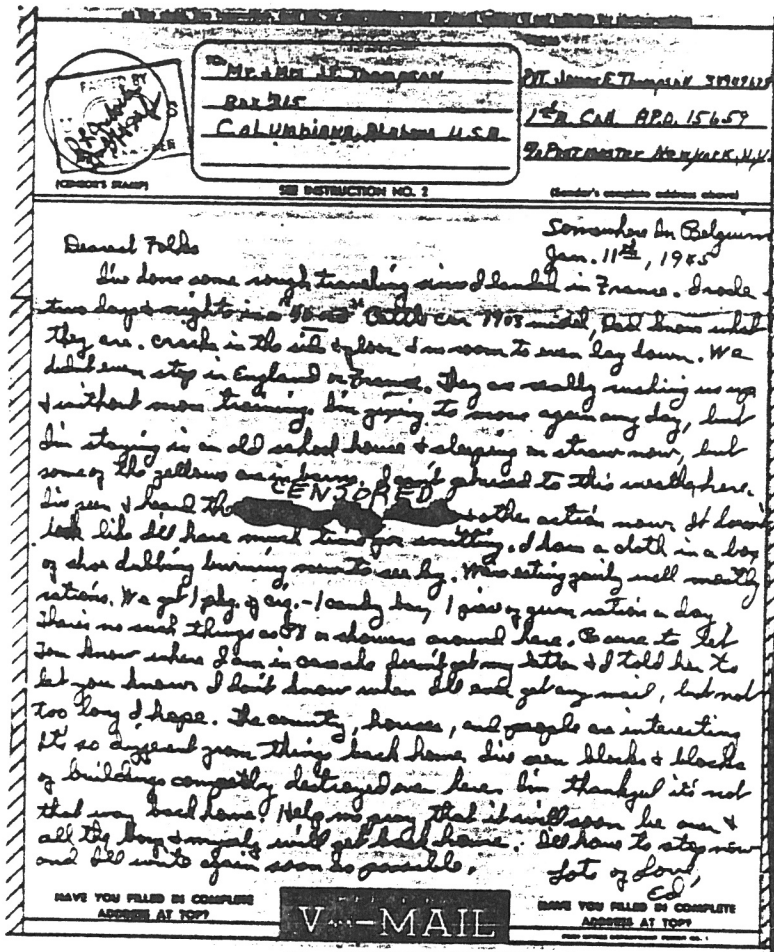 PASSED BY
(CENSOR'S STAMP)
TO:
Mr. & Mrs. J.P. Thompson
Box 215
Columbiana, Alabama U.S.A.
SEE INSTRUCTION NO. 2
Pvt James E Thompson
A.P.O. 15659
% Postmaster New York, N.Y.
(Sender's complete address above)
Somewhere In Belgium
Jan. 11th, 1945
Dearest Folks
I've done some rough traveling since I landed in France. I rode
two days & nights in a Cattle car 1903 model, Dad knows what
they are. cracks in the side & floor & no room to even lay down. We
didn't even stop in England or France. They are really rushing us up
& without more training. I'm going to move again any day, but
I'm staying in an old school house & sleeping on straw now, but
some of the fellows are in barns. I can't get used to this weather here.
CENSORED
I've seen & heard the other action now. It doesn't
look like I'll have much time for writing. I have a cloth in a box
of shoe dubbing burning now to see by. We're eating fairly well mostly
rations. We get 1 pkg. of cig. - 1 candy bar, 1 piece of gum ration a day
There's no such things as or showers around here. Be sure to let
know where I am in case she doesn't get my letter & I told her to
let you know. I don't know when I'll ever get any mail, but not
too long I hope. The country, houses, and people are interesting
It's so different from things back home. I've seen blocks & blocks
of buildings completly destroyed over here. I'm thankful it's not
that way back home. Help me pray that it will soon be over &
all the boys & myself will get back home. I'll have to stop now
and I'll write again soon as possible.
Lots of Love,
Ed
HAVE YOU FILLED IN COMPLETE
ADDRESS AT TOP?
V···—MAIL
HAVE YOU FILLED IN COMPLETE
ADDRESS AT TOP?